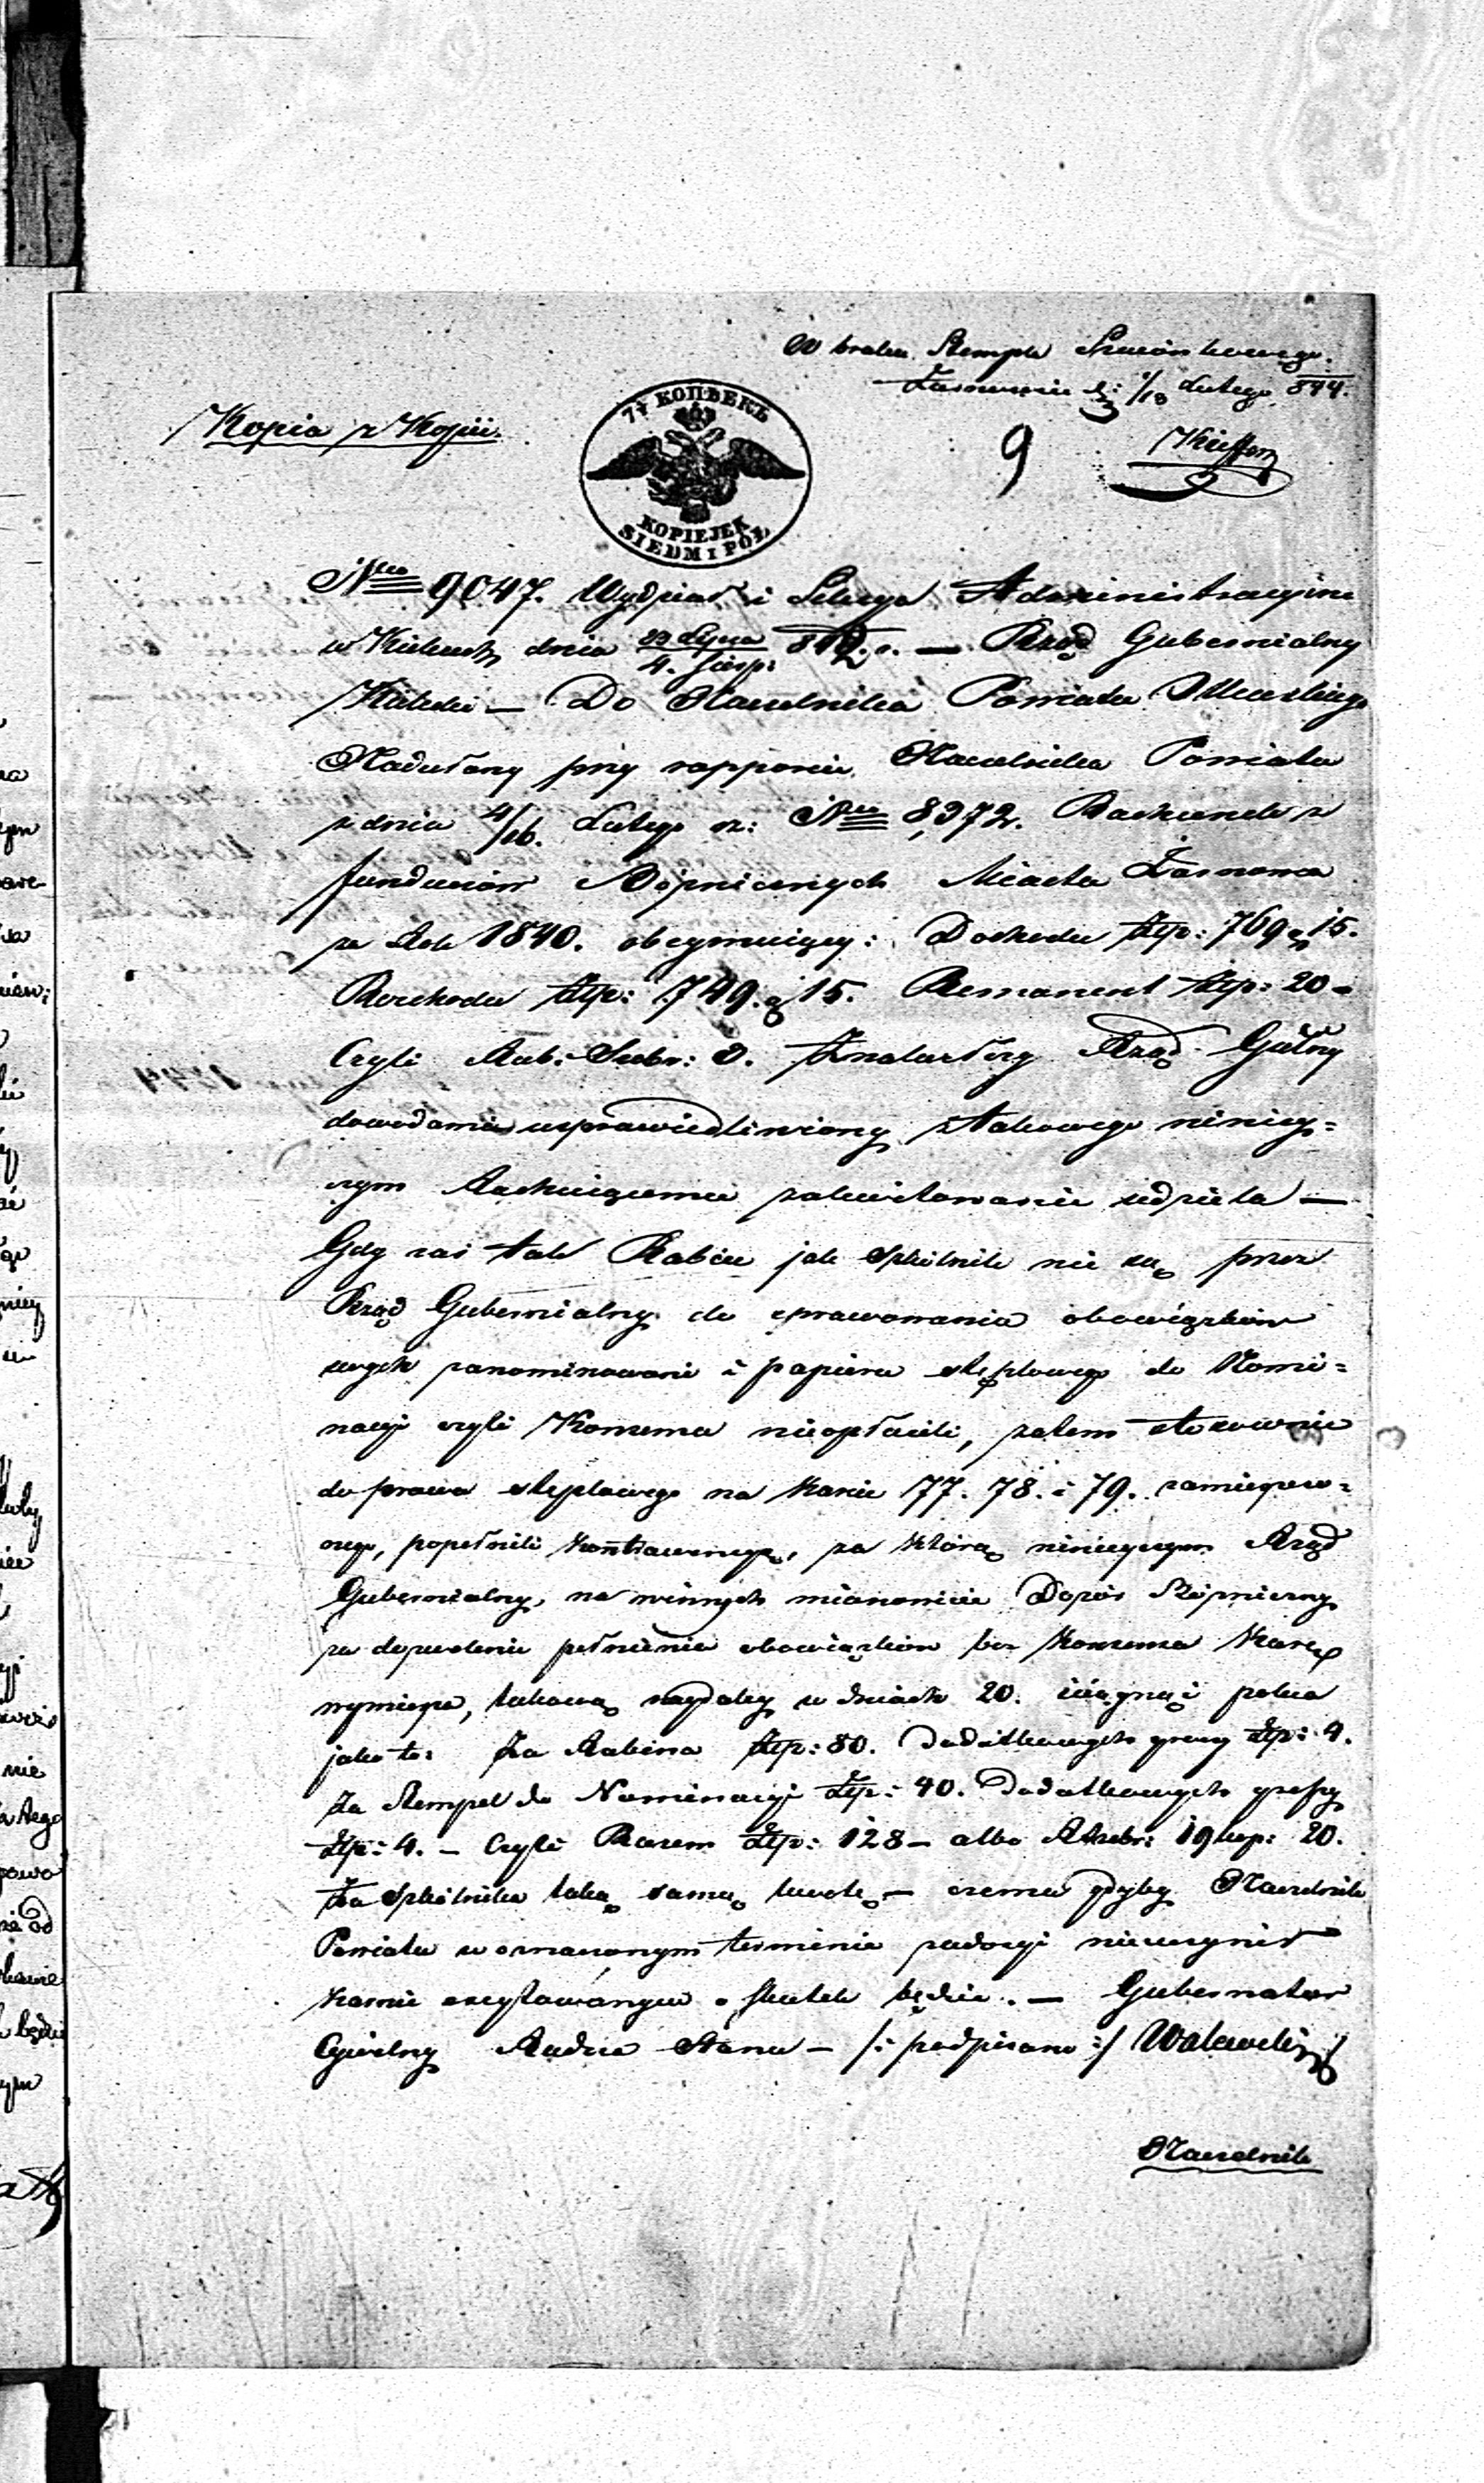 W braku Stempla
Żarnowiec d: 1/13 Lutego 844.
Kopia z Kopii.
9
7½ КОПѢЕКЪ
KOPIEJEK
SIEDM I PÓŁ
Nro 9047. Wydział i Sekcya Administracyine
w Kielcach dnia 23 Lipca / 4. Sierp: 842 r. — Rząd Gubernialny
Kielecki — Do Naczelnika Powiatu Olkuskiego
Nadesłany przy rapporcie Naczelnika Powiatu
z dnia 4/16. Lutego r: Nro 8,372. Rachunek z
funduszów Bóżniczych Miasta Żarnowca
za Rok 1840. obeymuiący: Dochodu Złp: 769 g 15.
Rozchodu Złp: 749. g 15. Remanent Złp: 20 –
Czyli Rub: Srebr: 3. Znalazłszy Rząd Gub̃ny
dowodami usprawiedliwiony z takowego niniey=
szym Rachuiącemu zakwitowanie udziela —
Gdy zaś tak Rabin jak Szkólnik nie są przez
Rząd Gubernialny do sprawowania obowiązków
swych zanominowani i papieru stęplowego do Nomi=
nacyi czyli Konsensu nieopłacili, zatem stosownie
do prawa stęplowego na karcie 77. 78. i 79. zamieszczo=
nego, popełnili kontrawencyę, za którą ninieyszym Rząd
Gubernialny, na winnych mianowicie Dozór Bóżniczny
za dozwolenie pełnienia obowiązków bez konsensu karę
wymierza, takową w dniach 20. ściągnąć poleca
jako to: Za Rabina Złp: 80. Dodatkowych groszy Złp: 4.
Za Stempel do Nominacyi Złp: 40. Dodatkowych groszy
Złp: 4. – Czyli Razem Złp: 128 – albo Rsrebr: 19 kop: 20.
Za Szkólnika taką samą kwotę – czemu gdyby Naczelnik
Powiatu w oznaczonym terminie zadosyć nieuczynił
karnie exzystowanym o skutek będzie. — Gubernator
Cywilny Radca Stanu – /: podpisano :/ Walewski
Naczelnik